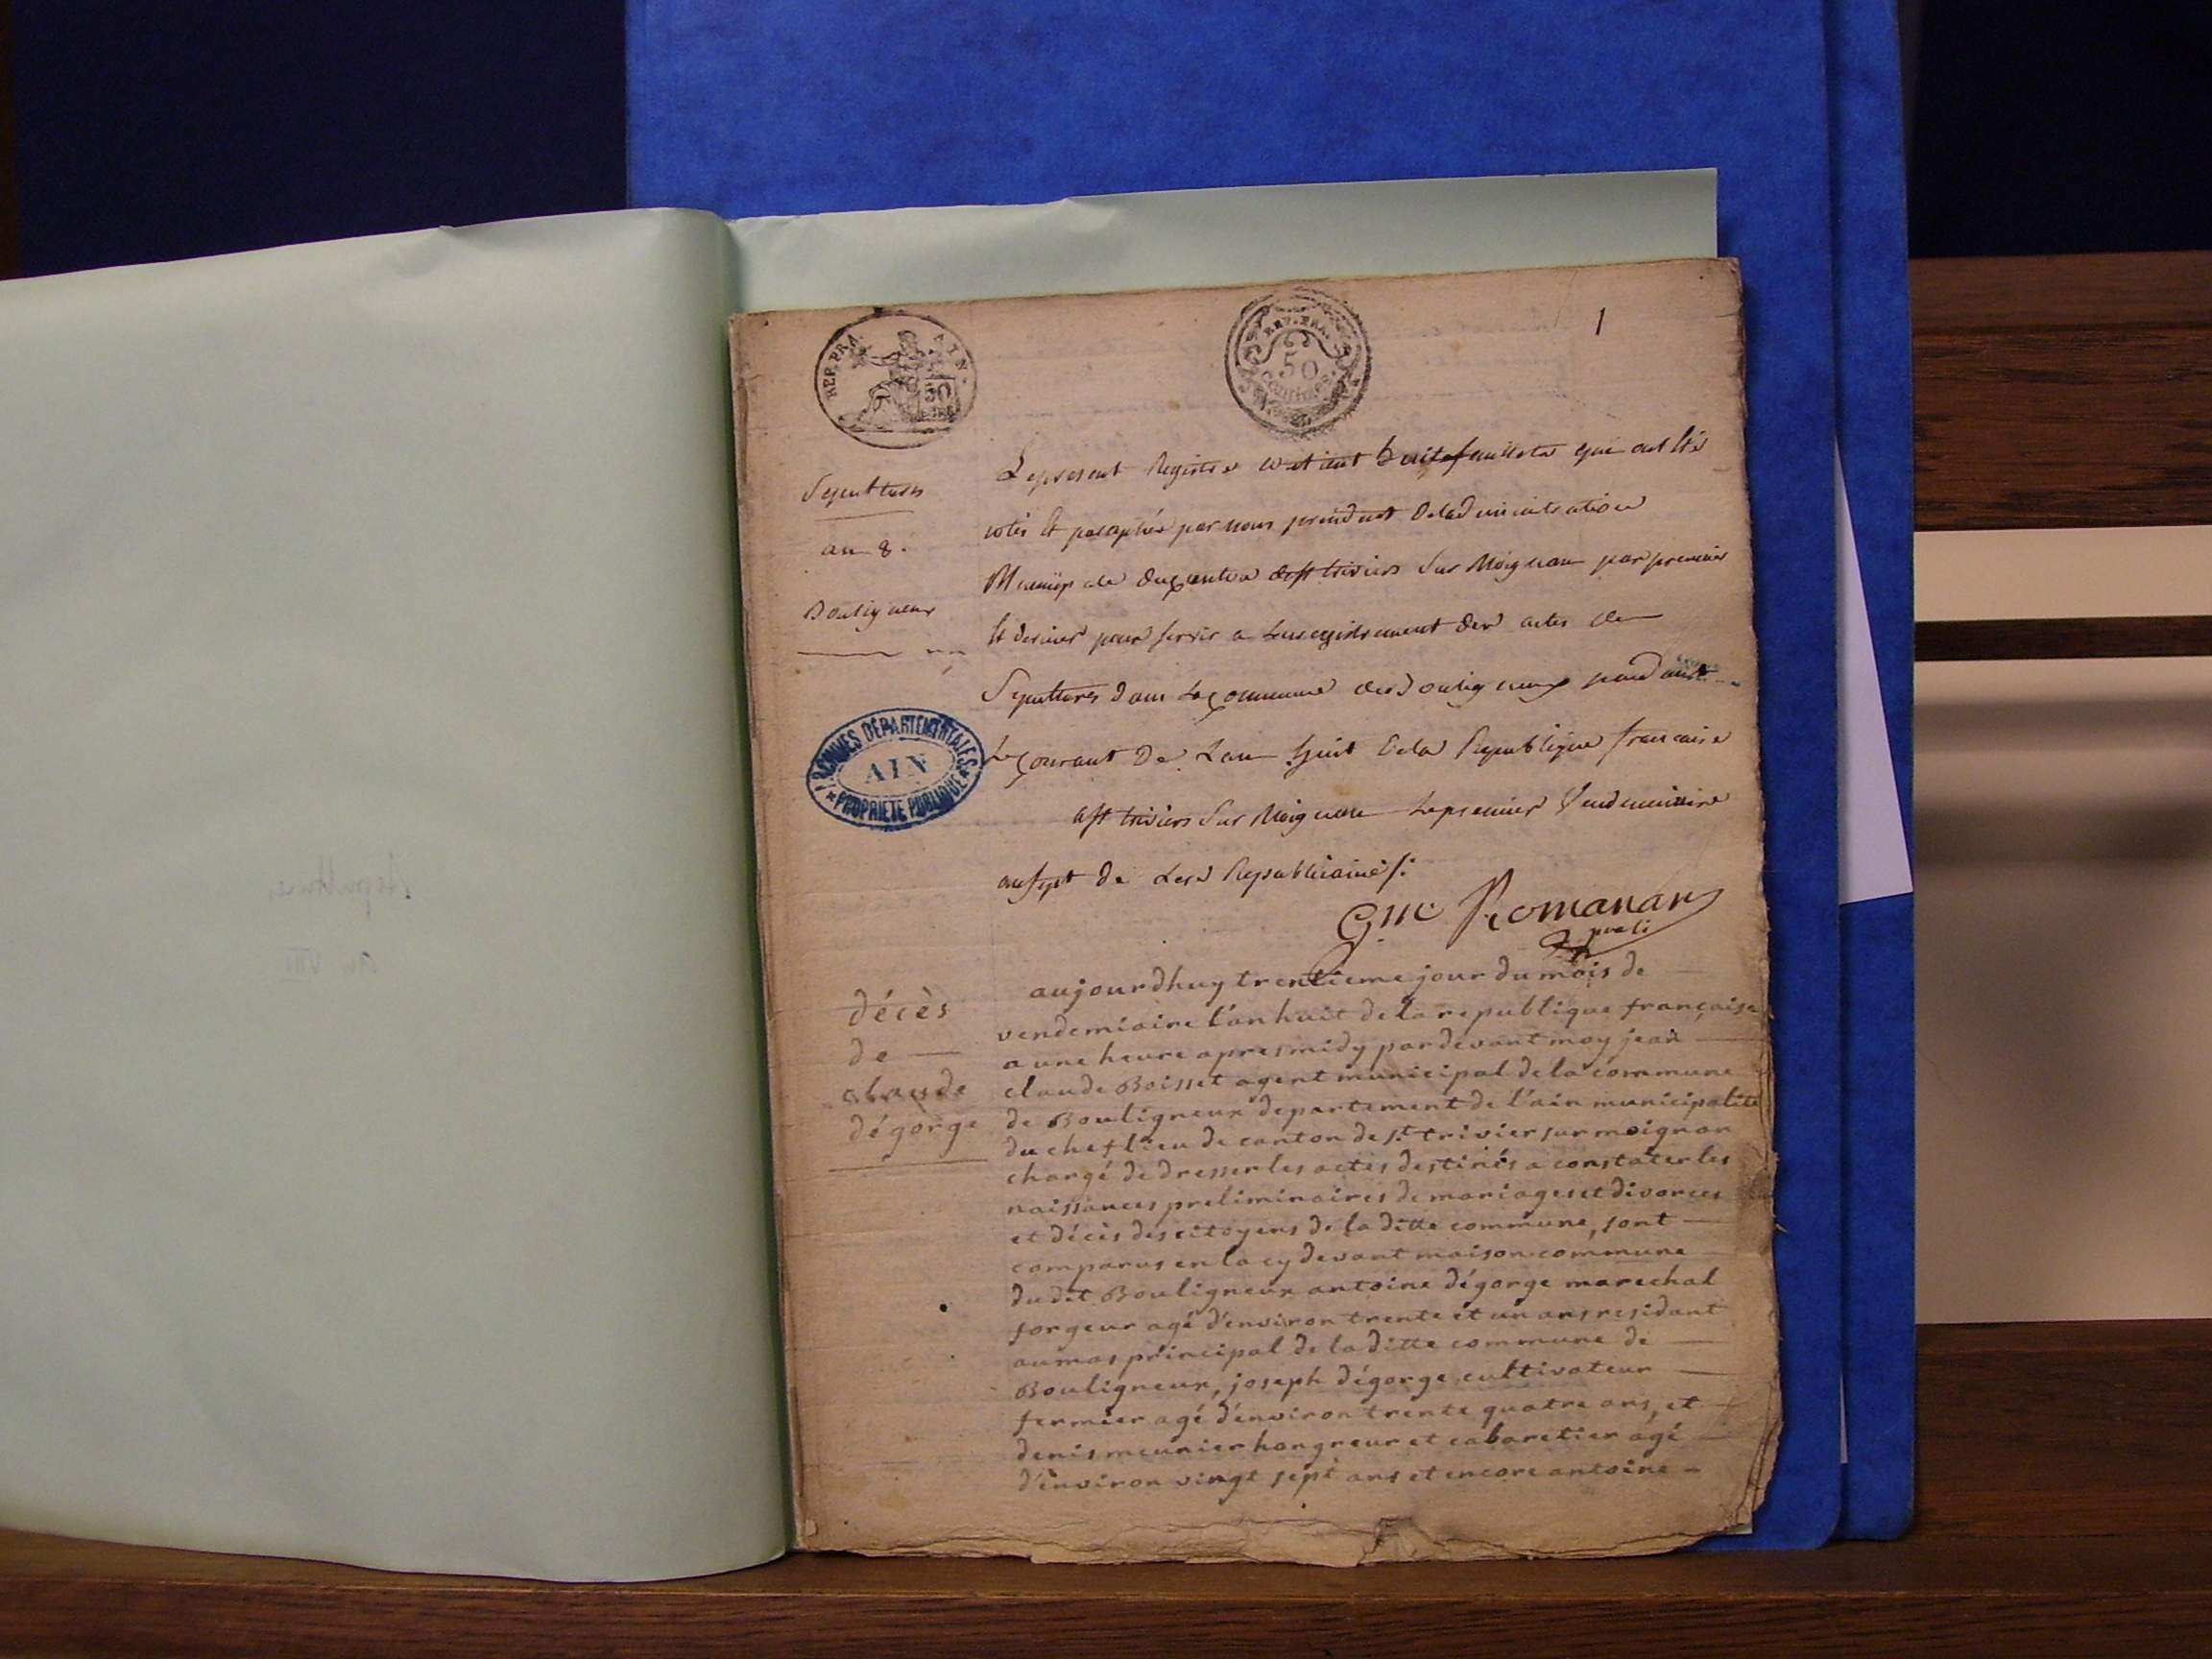 REP. FRA. AIN.
50
REP. FRA.
50
centimes.
1
Sepultures
an 8.
Bouligneux
Le present Registre contient huit feuillets qui ont été
cotés et paraphés par nous president de ladministration
Municip ale du Canton de st triviers sur Moignan par premier
et dernier pour servir a Lenregistrement des actes de
Sepultures dans La Commune de Bouligneux pendant
Le Courant de Lan huit de la Republique francaise
a st triviers sur Moignan Le premier Vendemiaire
an sept de Lere Republicaine ∫:
Romanan
ARCHIVES DÉPARTEMENTALES
AIN
* PROPRIÉTÉ PUBLIQUE *
décès
de
claude
dégorge
aujourdhuy trentieme jour du mois de
vendemiaire l'an huit de la republique française
a une heure apres midy pardevant moy jean
claude Boisset agent municipal de la commune
de Bouligneux departement de l'ain municipalité
du chef lieu de canton de st. trivier sur moignan
chargé de dresser les actes destinés a constater les
naissances preliminaires de mariages et divorces
et décès des citoyens de la ditte commune, sont
comparus en la cy devant maison commune
du dit Bouligneux antoine dégorge marechal
forgeur agé d'environ trente et un ans residant
au mas principal de la ditte commune de
Bouligneux, joseph dégorge cultivateur
fermier agé d'environ trente quatre ans, et
denis meunier hongreur et cabaretier agé
d'environ vingt sept ans et encore antoine
Sépultures
An VIII